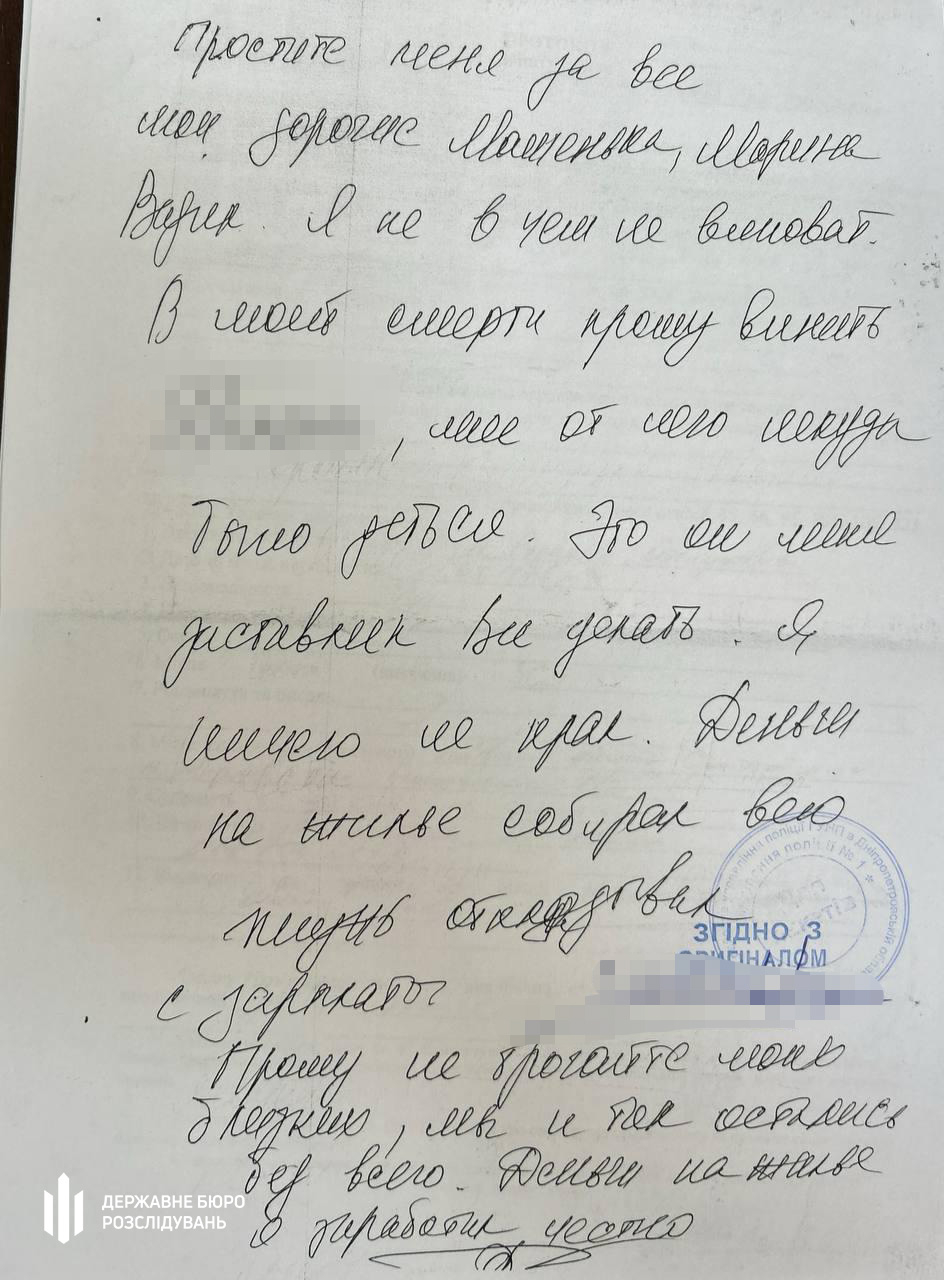 Простите меня за все
мои дорогие Машенька, Марина
Вадик. Я не в чем не виноват.
В моей смерти прошу винить
, мне от него некуда
было деться. Это он меня
заставлял все делать. Я
ничего не крал. Деньги
на жилье собирал всю
жизнь откладывал
с зарплаты
Прошу не трогайте моих
близких, мы и так остались
без всего. Деньги на жилье
я заработал честно
ЗГІДНО З
ОРИГІНАЛОМ
управління поліції ГУНП в Дніпропетровській облас
поліції № 1 *
ДЕРЖАВНЕ БЮРО
РОЗСЛІДУВАНЬ